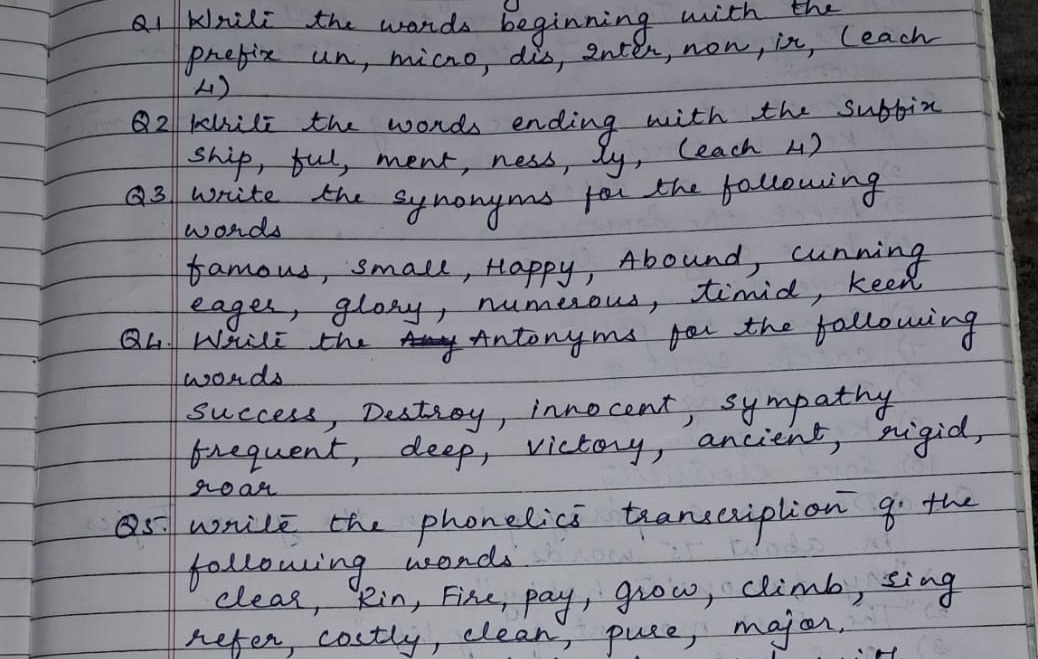 Q1 Write the words beginning with the
prefix un, micro, dis, Inter, non, ir, (each
4)
Q2 Write the words ending with the suffix
ship, ful, ment, ness, ly, (each 4)
Q3 Write the synonyms for the following
words
famous, small, Happy, Abound, cunning
eager, glory, numerous, timid, keen
Q4. Write the Antonyms for the following
words
Success, Destroy, innocent, sympathy
frequent, deep, victory, ancient, rigid,
roar
Q5. write the phonetics transcription of the
following words.
clear, Rin, Fire, pay, grow, climb, sing
refer, costly, clean, pure, major,